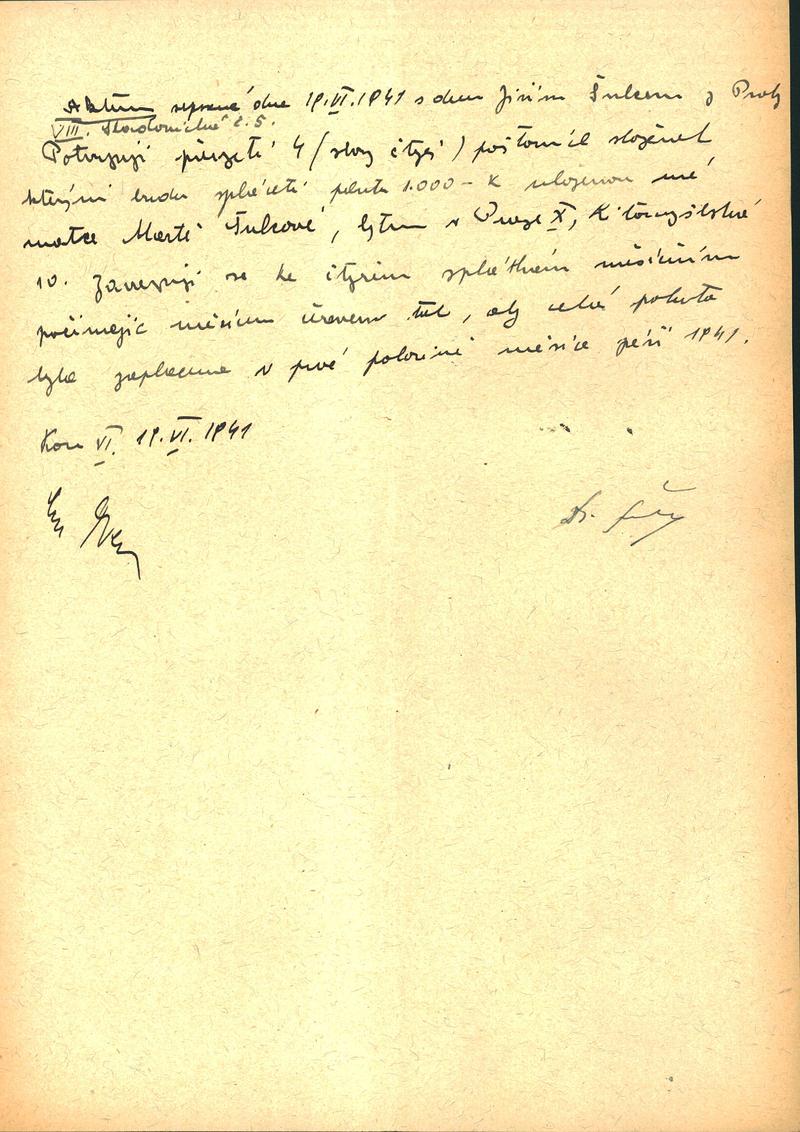 Aktum sepsané dne 19.VI.1941 s drem Jiřím Šulcem z Prahy
VIII. č. 5.
Potvrzuji převzetí 4 (slovy čtyř) poštovních složenek
kterými budu spláceti pokutu 1.000 - K uloženou mé
matce Martě Šulcové, bytem v Praze X, Litomyšlská
10. Zavazuji se ke čtyřem splátkám měsíčním
počínajíc měsícem červnem tak, aby celá pokuta
byla zaplacena v prvé polovině měsíce září 1941.
VI. 19.VI.1941
Dr.